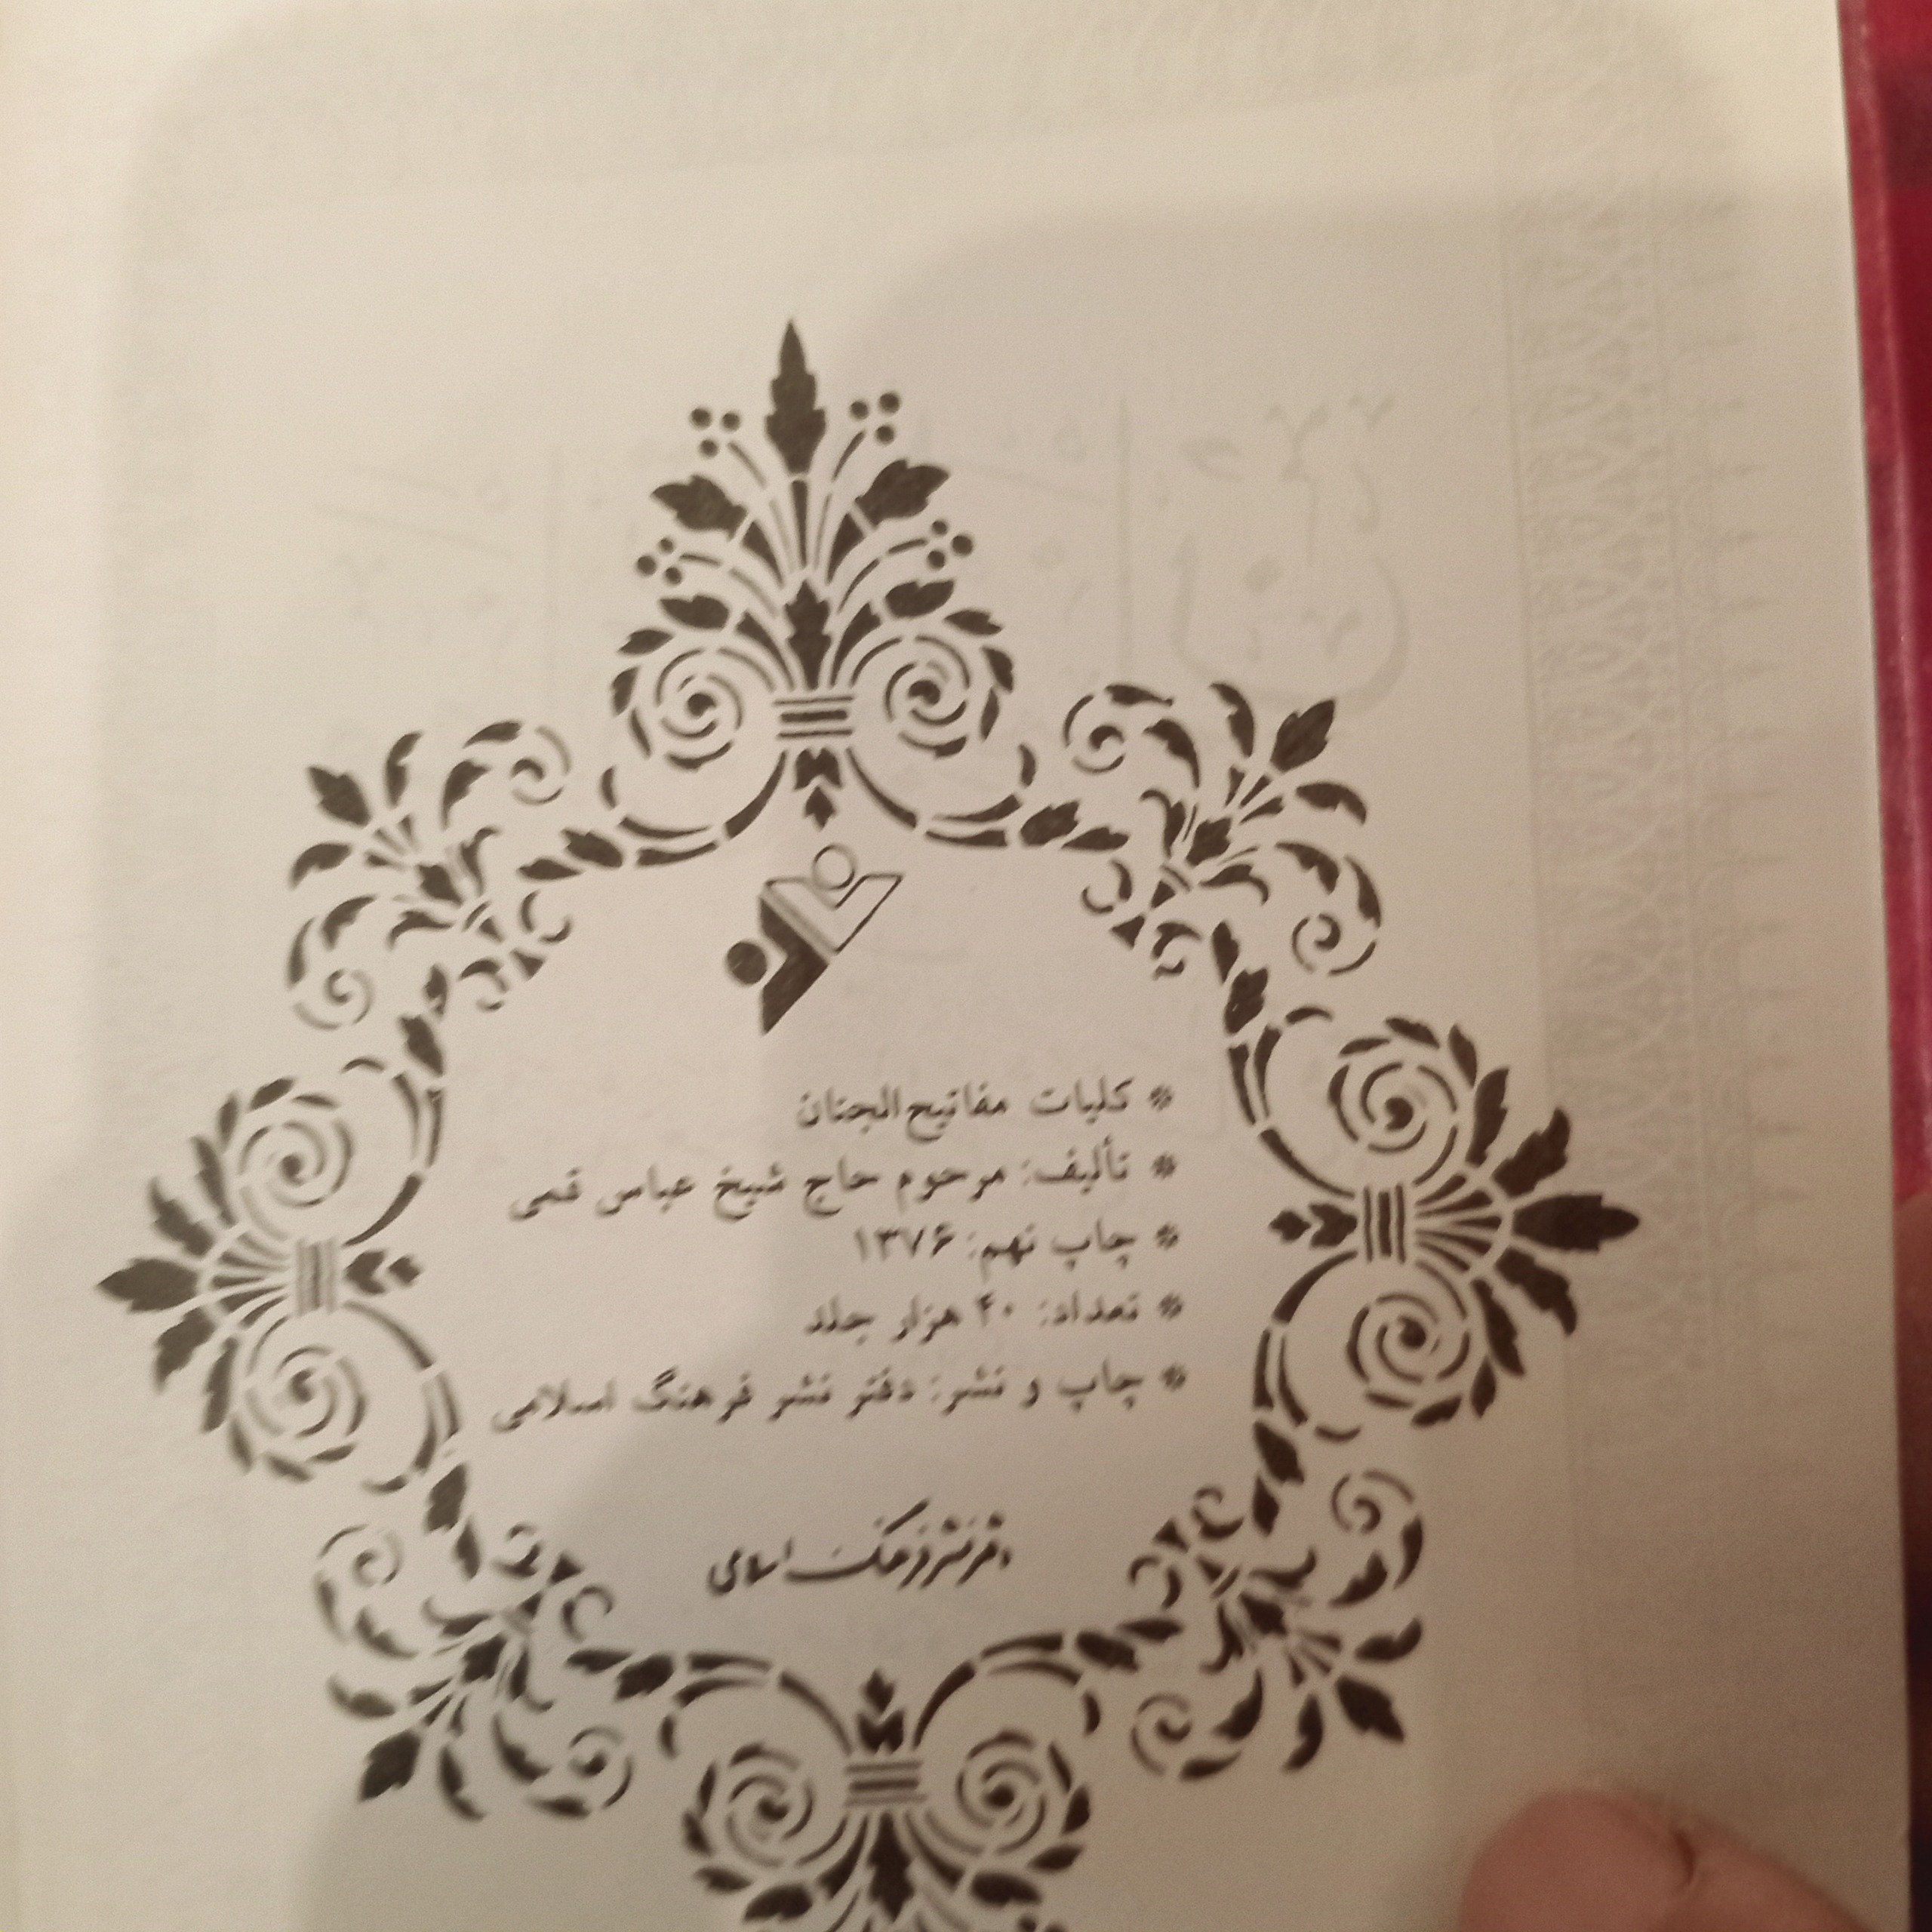 * کلیات مفاتیح‌الجنان
* تألیف: مرحوم حاج شیخ عباس قمی
* چاپ نهم: ۱۳۷۶
* تعداد: ۴۰ هزار جلد
* چاپ و نشر: دفتر نشر فرهنگ اسلامی
دفتر نشر فرهنگ اسلامی